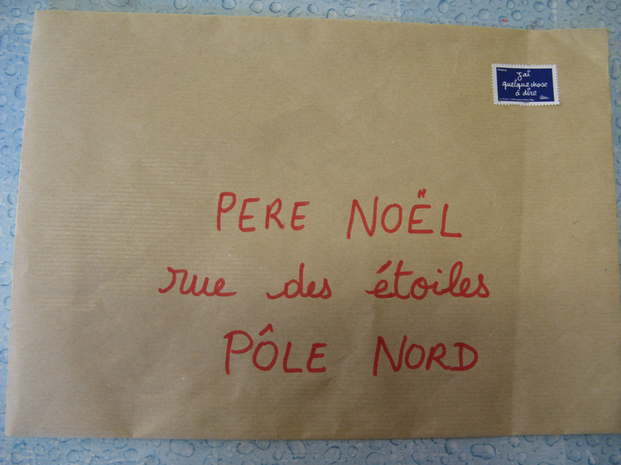 j'ai
quelque chose
à dire
Ben
PERE NOËL
rue des étoiles
PÔLE NORD